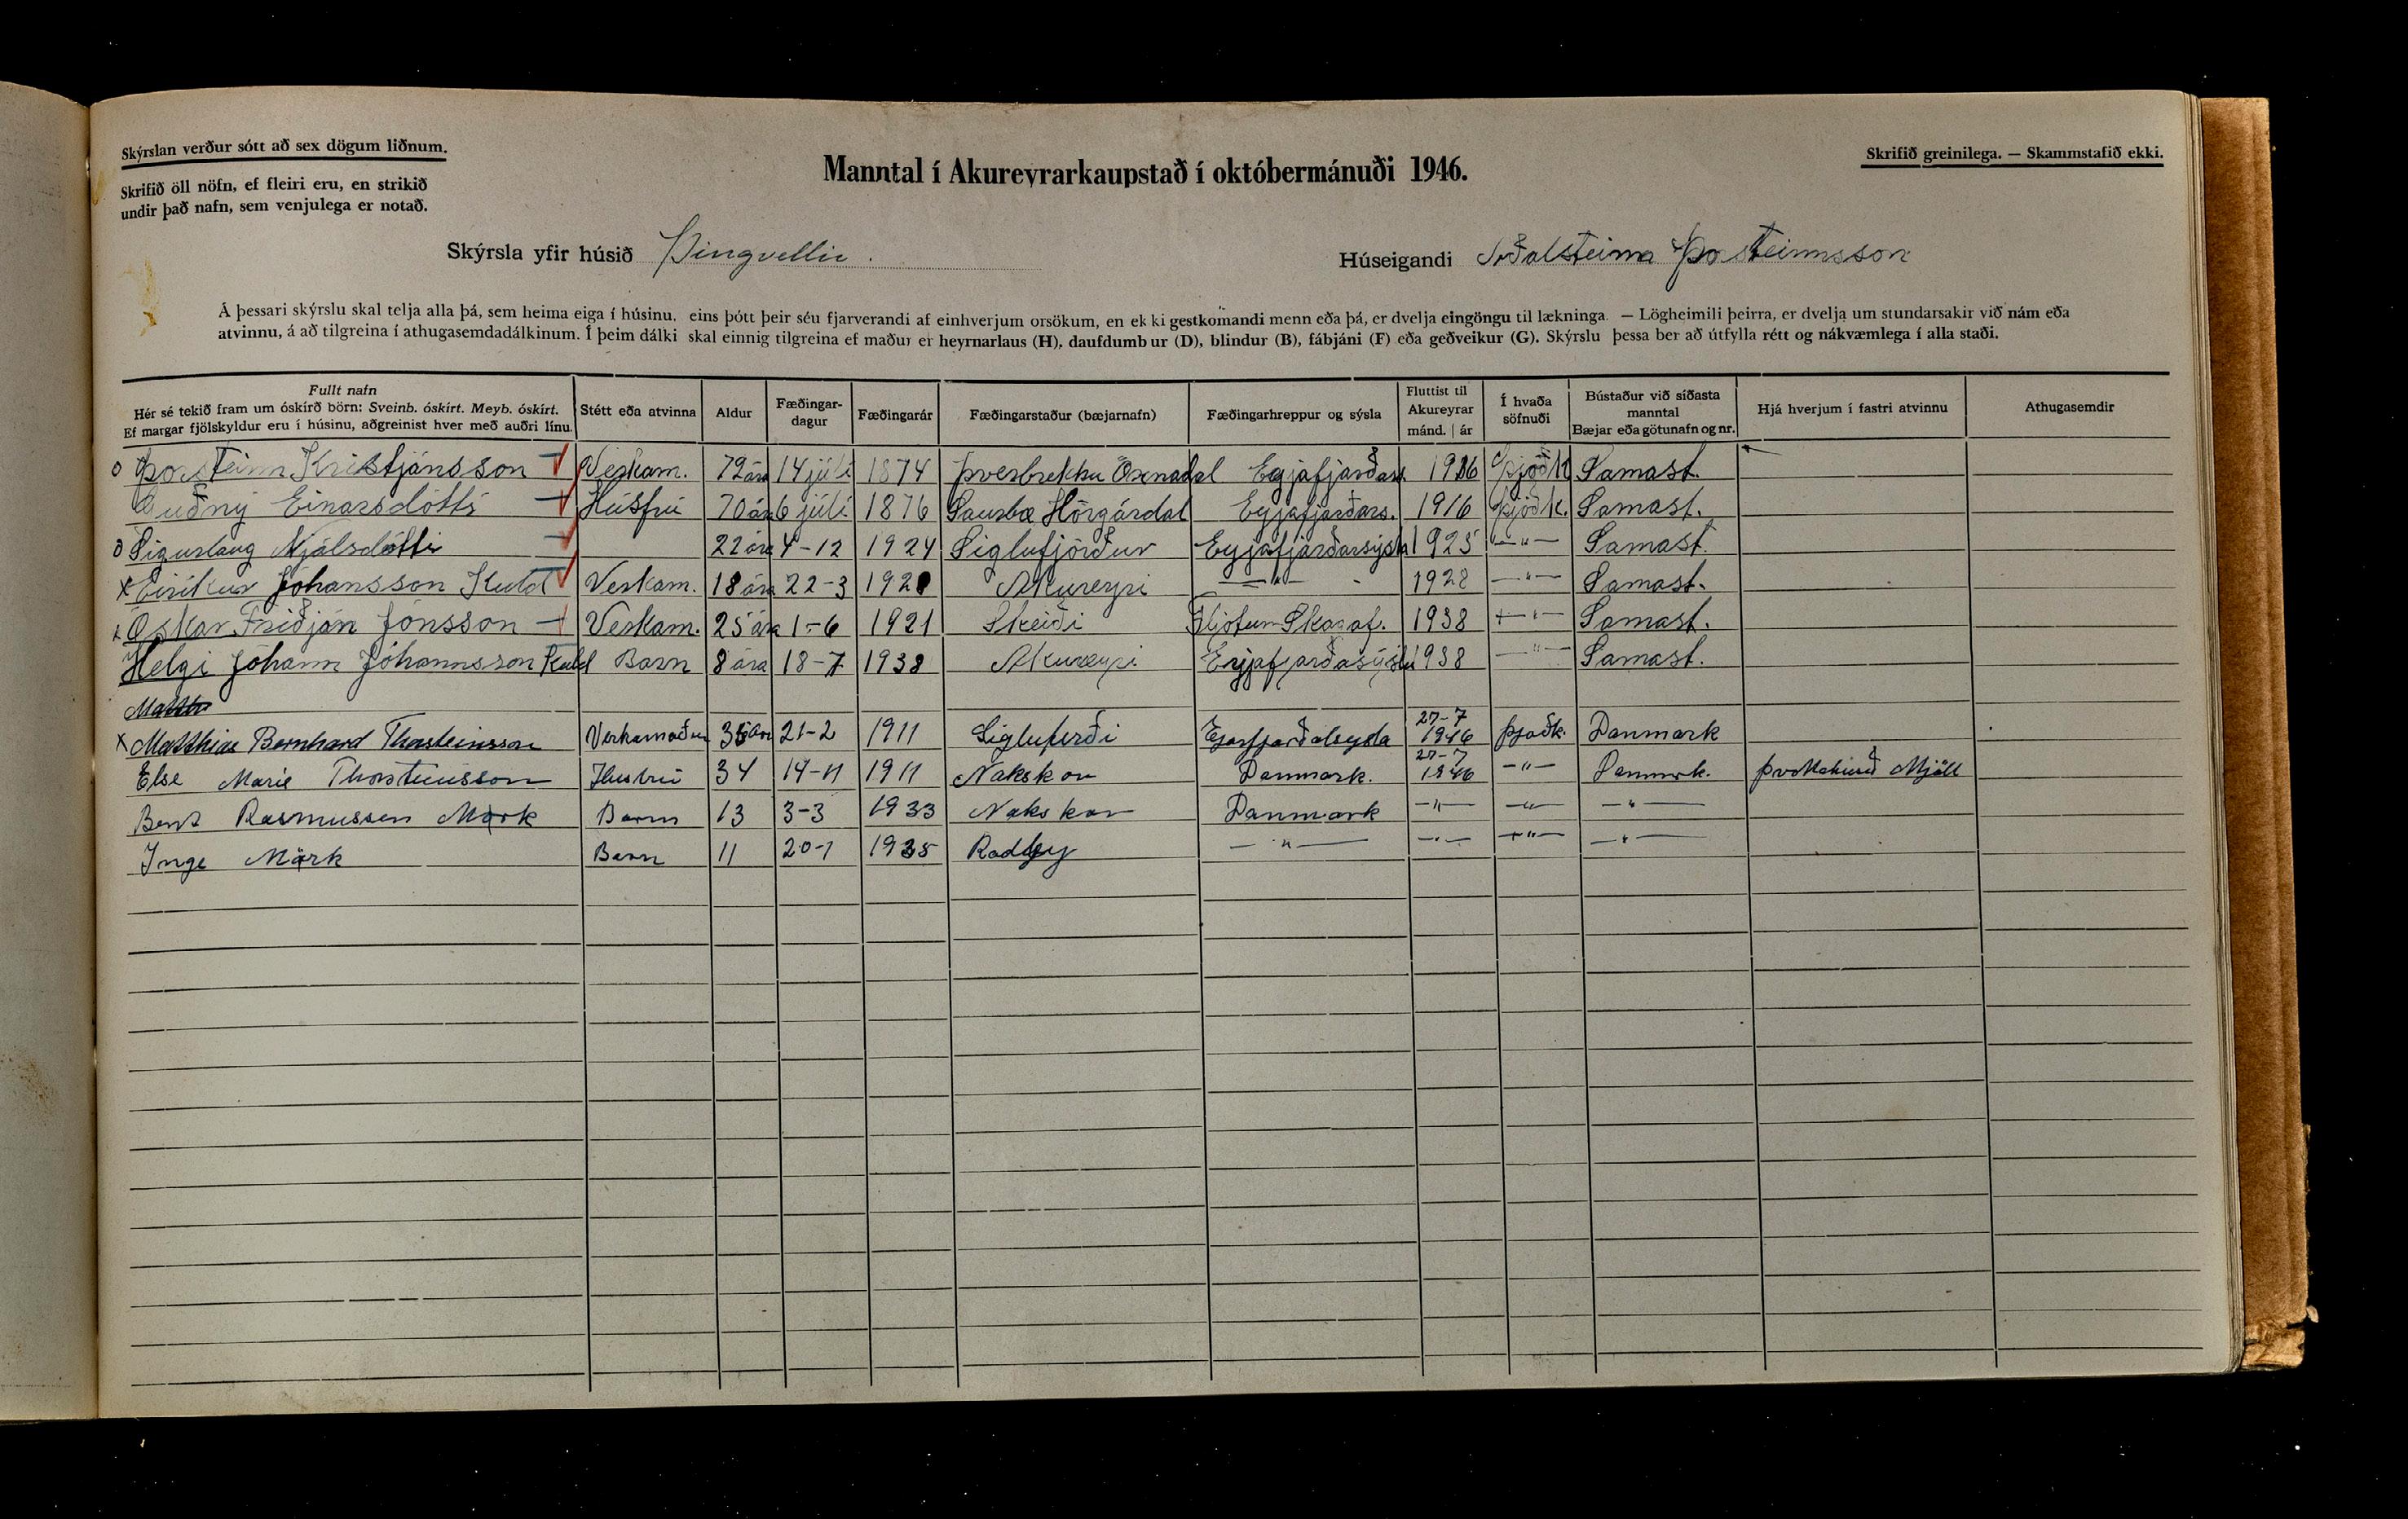 Skýrslan verður sótt að sex dögum liðnum.
Skrifið öll nöfn, ef fleiri eru, en strikið
undir það nafn, sem venjulega er notað.
Manntal í Akureyrarkaupstað í októbermánuði 1946.
Skrifið greinilega. — Skammstafið ekki.
Skýrsla yfir húsið Þingvellir.
Húseigandi Aðalsteinn Þorsteinsson
Á þessari skýrslu skal telja alla þá, sem heima eiga í húsinu, eins þótt þeir séu fjarverandi af einhverjum orsökum, en ekki gestkomandi menn eða þá, er dvelja eingöngu til lækninga. — Lögheimili þeirra, er dvelja um stundarsakir við nám eða
atvinnu, á að tilgreina í athugasemdadálkinum. Í þeim dálki skal einnig tilgreina ef maður er heyrnarlaus (H), daufdumbur (D), blindur (B), fábjáni (F) eða geðveikur (G). Skýrslu þessa ber að útfylla rétt og nákvæmlega í alla staði.
Fullt nafn Hér sé tekið fram um óskírð börn: Sveinb. óskírt. Meyb. óskírt. Ef margar fjölskyldur eru í húsinu, aðgreinist hver með auðri línu. Stétt eða atvinna Aldur Fæðingar-dagur Fæðingarár Fæðingarstaður (bæjarnafn) Fæðingarhreppur og sýsla Fluttist til Akureyrar mánd. | ár Í hvaða söfnuði Bústaður við síðasta manntal Bæjar eða götunafn og nr. Hjá hverjum í fastri atvinnu Athugasemdir
o Þorsteinn Kristjánsson Verkam. 72 ára 14 júlí 1874 Þverbrekku Öxnadal Eyjafjarðars. 1916 Þjóðk Samast.
Guðný Einarsdótti Húsfrú 70 ára 6 júlí 1876 Saurbæ Hörgárdal Eyjafjarðars. 1916 Þjóðk. Samast.
o Sigurlaug Njálsdótti 22 ára 4-12 1924 Siglufjörður Eyjafjarðarsýsla 1925 —"— Samast.
x Eiríkur Jóhansson Kuld Verkam. 18 ára 22-3 1928 Akureyri —"— 1928 —"— Samast.
x Óskar Friðján Jónsson Verkam. 25 ára 1-6 1921 Skeiði Fljótum Skagaf. 1938 —"— Samast.
Helgi Jóhann Jóhannsson Kuld Barn 8 ára 18-7 1938 Akureyri Eyjafjarðasýslu 1938 —"— Samast.
x Matthias Bernhard Thorsteinsson Verkamaður 35 ára 21-2 1911 Siglufirði 27-7 1946 Þjoðk. Danmark
Else Marie Thorsteinsson Hustrú 34 14-11 1911 Nakskov Danmark. 27-7 1946 —"— Danmark. Þvottahúsið Mjöll
Bent Rasmussen Mørk Barn 13 3-3 1933 Nakskov Danmark —"— —"— —"—
Inge Mørk Barn 11 20-1 1935 Rødby —"— —"— —"— —"—